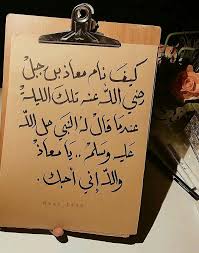 كيفَ نام معاذ بن جبلْ
رضي اللهُ عنه تلك الليلةْ
عندما قال له النبي صلى اللهُ
عليه وسلمْ .. يا معاذُ
واللهِ إني أحبك .